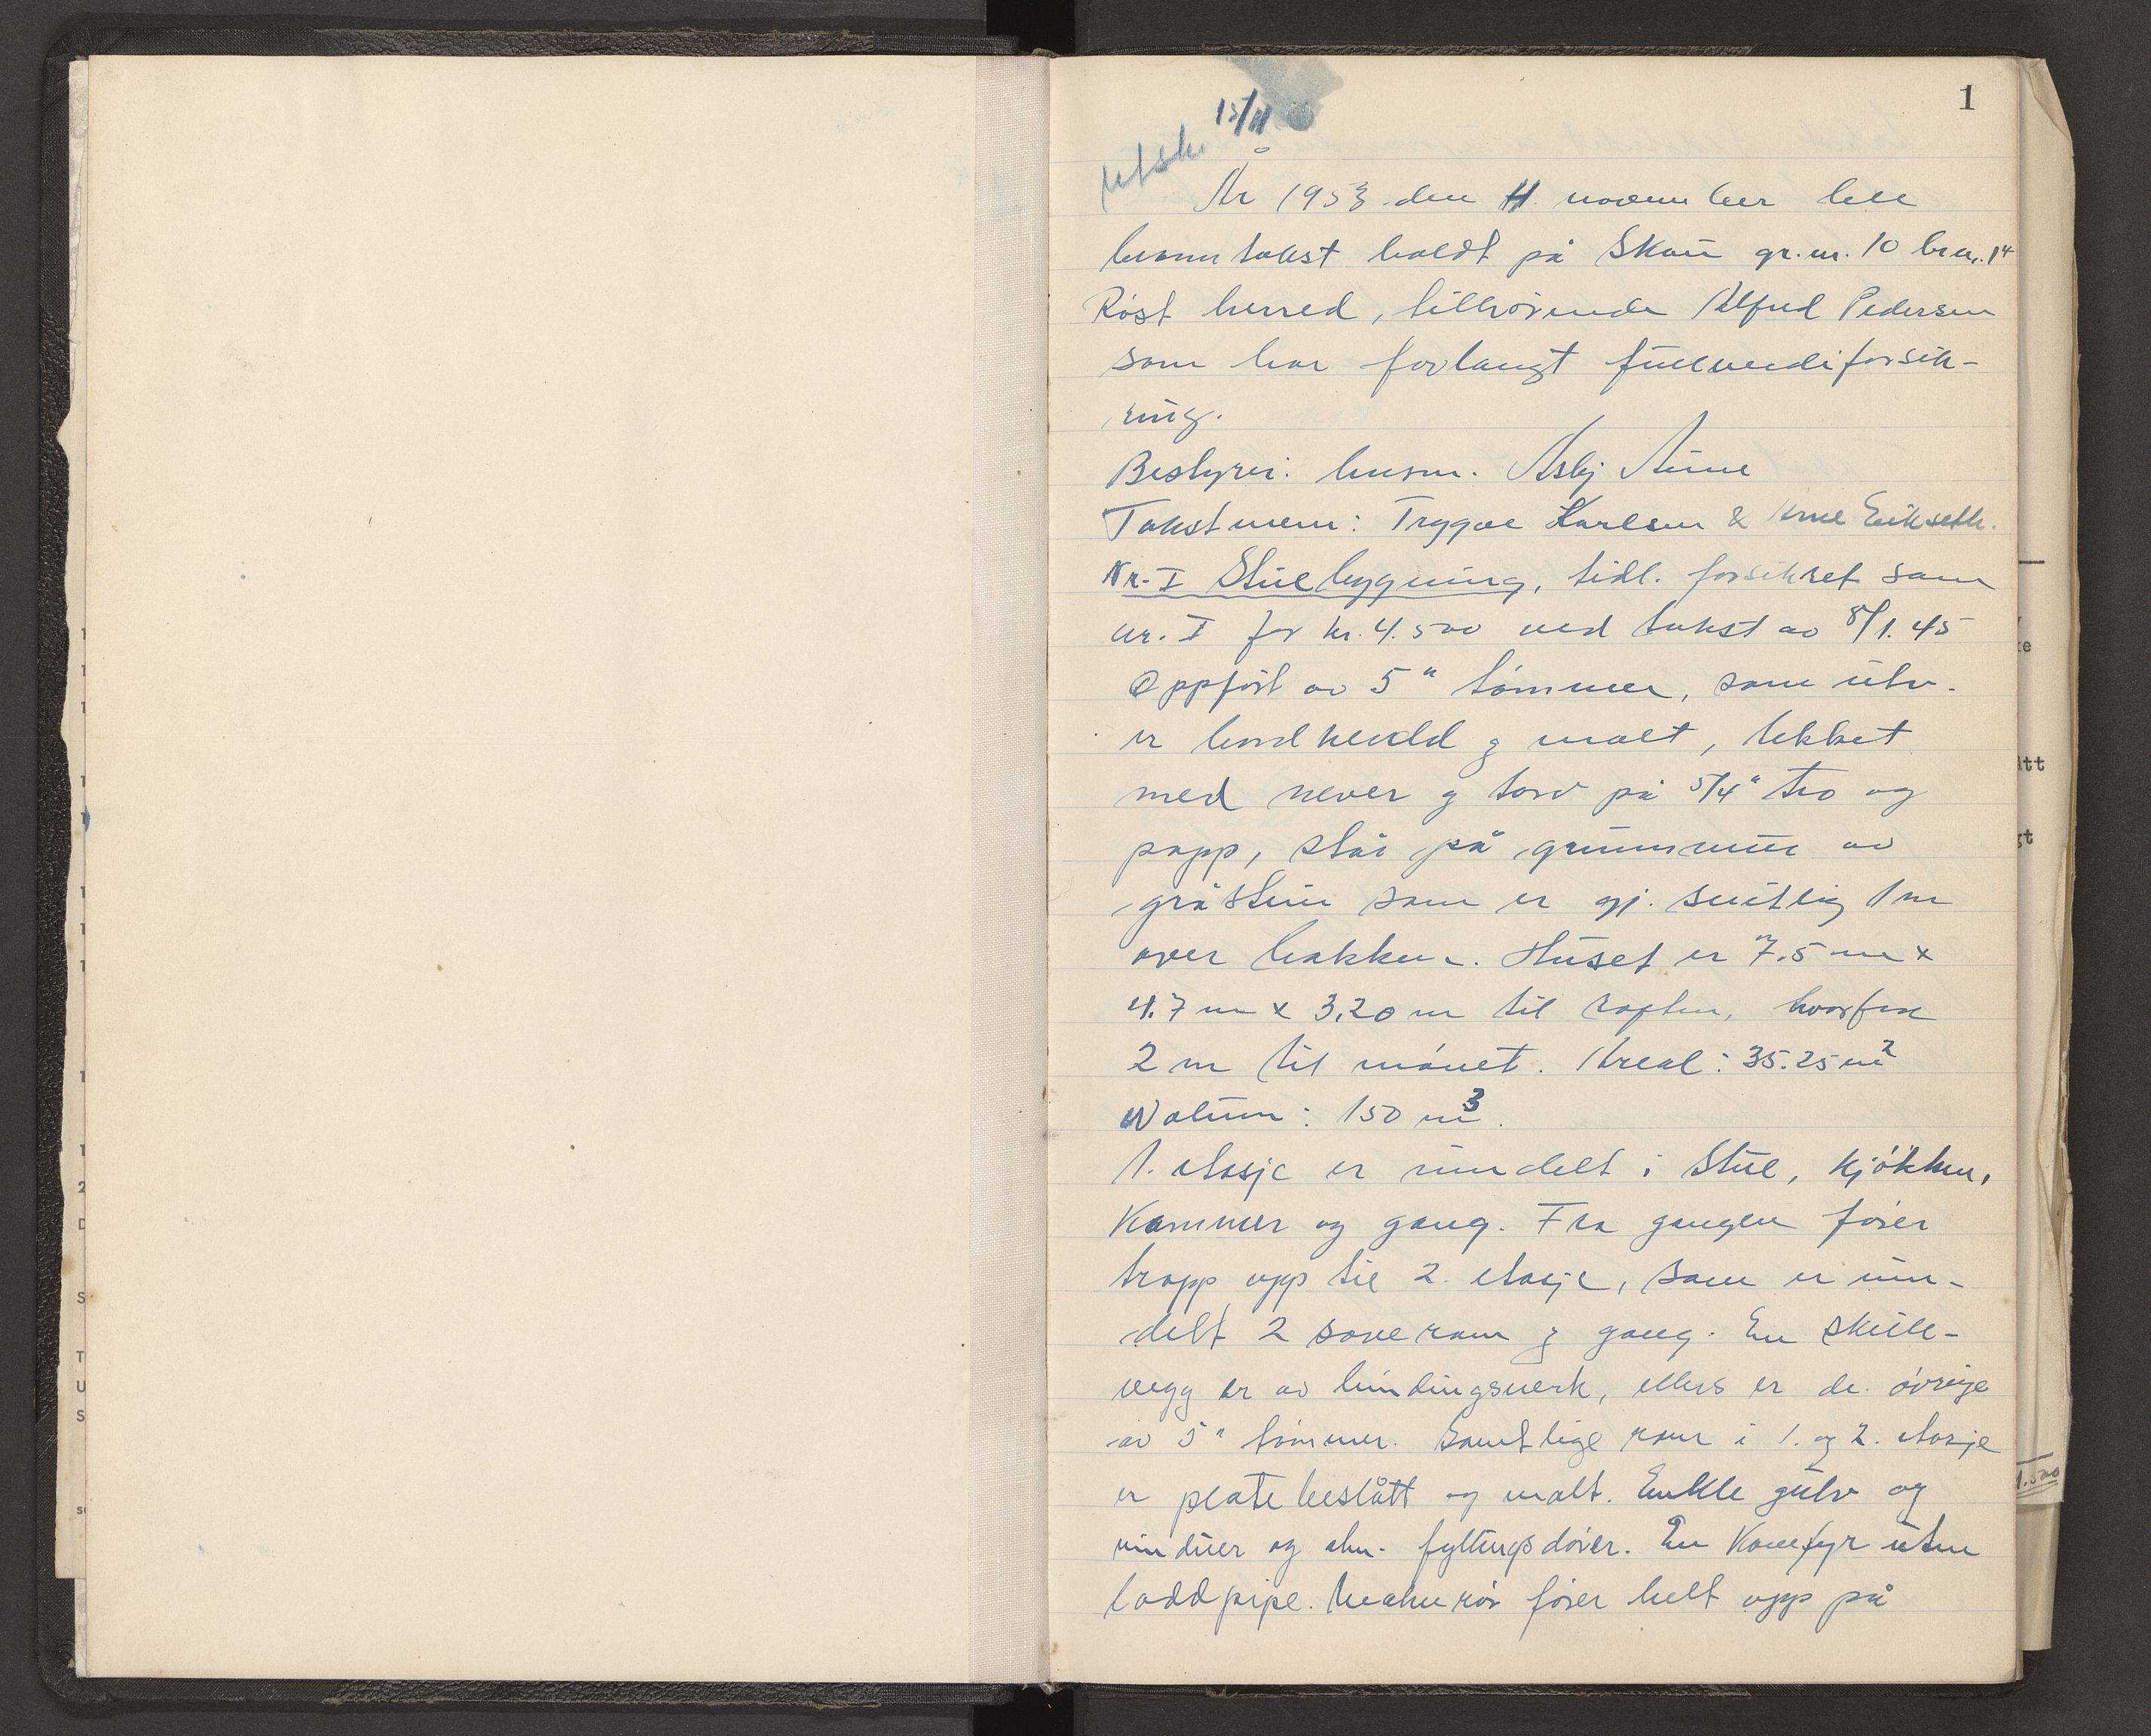 1
utskr. 13/11
År 1953 den 11. november ble
branntakst holdt på Skau gr.nr. 10 br.nr. 14
Røst herred, tilhørende Alfred Pedersen
som har forlangt fullverdiforsik-
ring.
Bestyrer: lensm. Asbj
Takstmenn: Trygve Karlsen & Arne Eikseth.
Nr. I Stuebygning, tidl. forsikret som
nr. I for kr. 4.500 ved takst av 8/1.45
Oppført av 5" tømmer, som utv.
er bordkledd og malt, tekket
med never og torv på 5/4" tro og
papp, står på grunnmur av
gråstein som er gj.snitlig 1 m
over bakken. Huset er 7.5 m x
4.7 m x 3,20 m til raften, hvorfra
2 m til mønet. Areal: 35.25 m2
Volum: 150 m3.
1. etasje er inndelt i Stue, kjøkken,
Kammer og gang. Fra gangen fører
trapp opp til 2. etasje, som er inn-
delt 2 soverom og gang. En skille-
vegg er av bindingsverk, ellers er de øvrige
av 5" tømmer. Samtlige rom i 1. og 2. etasje
er platebeslått og malt. Enkle gulv og
vinduer og alm. fyllingsdører. En Komfyr uten
loddpipe. rør fører helt opp på